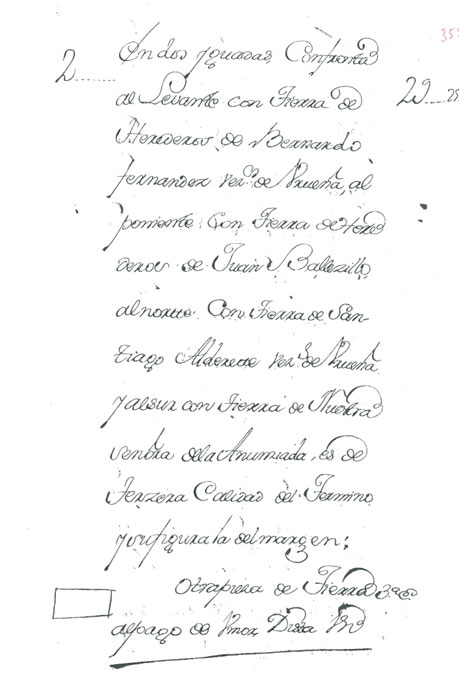 355
2
En dos yguadas, Confronta
29
al Levante con Tierra de
Herederos de Bernardo
fernandez vez.º de Prueña, al
poniente Con Tierra de Here
deros de Juan Ballezillo
al norte Con Tierra de San
tiago Alderete vez.º de Prueña
y al sur con Tierra de Nuestra
senora de la Anunciada, es de
Terzera Calidad del Termino
y su figura la del margen:
Otra pieza de Tierra
al pago de